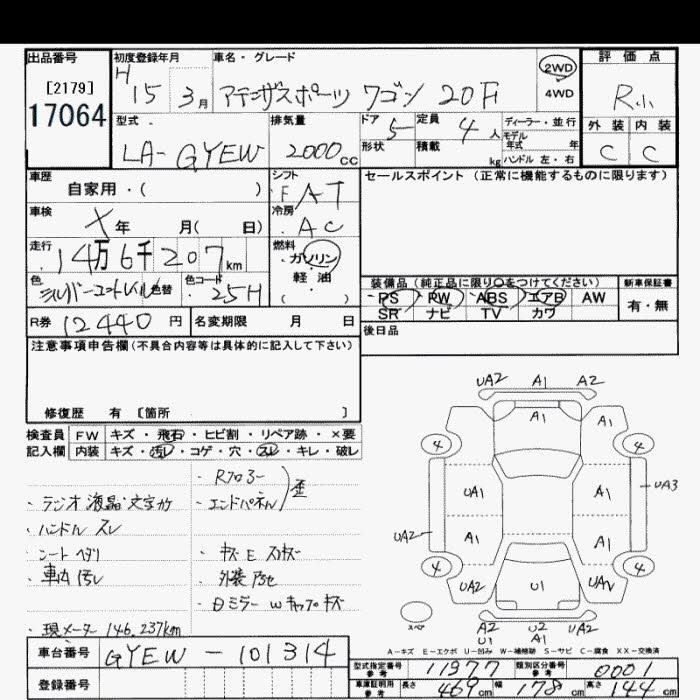 出品番号
[2179]
17064
初度登録年月
H 15 3月
車名・グレード
アテンザスポーツ ワゴン 20F
2WD
4WD
評価点
R小
外装 内装
C C
型式
LA-GYEW
排気量
2000cc
ドア
5
形状
定員
4人
積載
kg
ディーラー・並行
モデル
年式 年
ハンドル 左・右
車歴
自家用・( )
シフト
F AT
セールスポイント(正常に機能するものに限ります)
車検
X年 月( 日)
冷房
AC
走行
14万6千207km
燃料
ガソリン
軽・油
( )
色
色替
色コード
25H
装備品(純正品に限り○をつけてください)
PS PW ABS エアB AW
SR ナビ TV カワ
新車保証書
有・無
R券 12440円
名変期限 月 日
後日品
注意事項申告欄(不具合内容等は具体的に記入して下さい)
修復歴 有 [箇所 ]
検査員
記入欄
FW キズ・飛石・ヒビ割・リペア跡・×要
内装 キズ・汚レ・コゲ・穴・スレ・キレ・破レ
・ラジオ液晶文字カケ
・ハンドル スレ
・シート ヘタリ
・車内汚レ
・現メーター 146.237km
・Rフロアー
・エンドパネル
歪
・キズ E
・外装
・ミラー W キャップ キズ
UA2 A1 A2
A1 A1
4 4
UA1 A1 UA3
UA2 A1 A1
4 4
UA2 U1
スペア
A2 U2 UA2
U1 A1
A-キズ E-エクボ U-凹み W-補修跡 S-サビ C-腐食 XX-交換済
車台番号
GYEW-101314
登録番号
型式指定番号
参考
11977
類別区分番号
参考
0001
車庫証明用
参考
長さ 469cm 幅 178cm 高さ 144cm